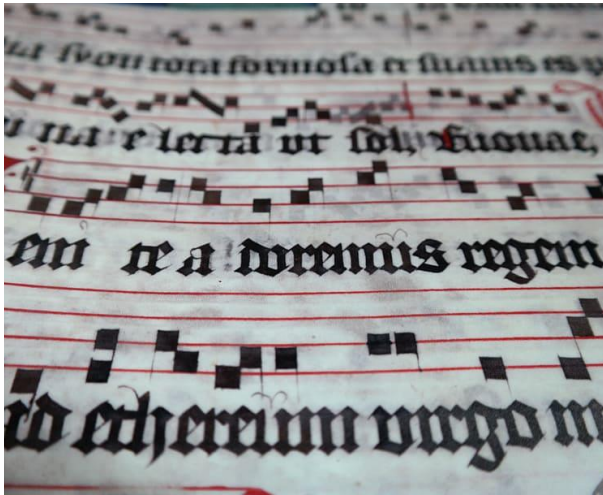 tota formosa et suauis es
electa ut sol, Euouae,
em te adoremus regem
ad ethereum uirgo